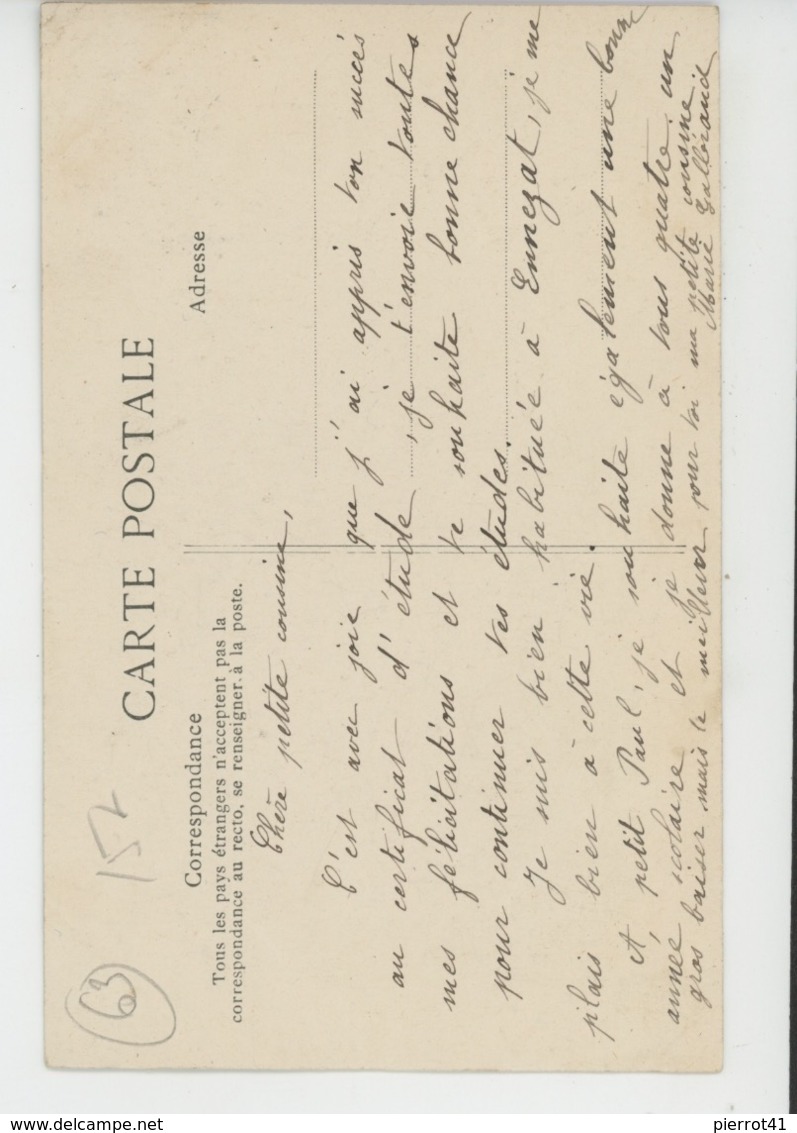 CARTE POSTALE
Correspondance
Adresse
Tous les pays étrangers n'acceptent pas la
correspondance au recto, se renseigner à la poste.
152
63
Chère petite cousine,
C'est avec joie que j'ai appris ton succès
au certificat d'étude, je t'envoie toutes
mes félicitations et te souhaite bonne chance
pour continuer tes études.
Je suis bien habituée à Ennezat, je me
plais bien à cette vie.
A petit Paul, je souhaite également une bonne
année scolaire et je donne à tous quatre un
gros baiser mais le meilleur pour toi ma petite cousine
Marie
delcampe.net
pierrot41